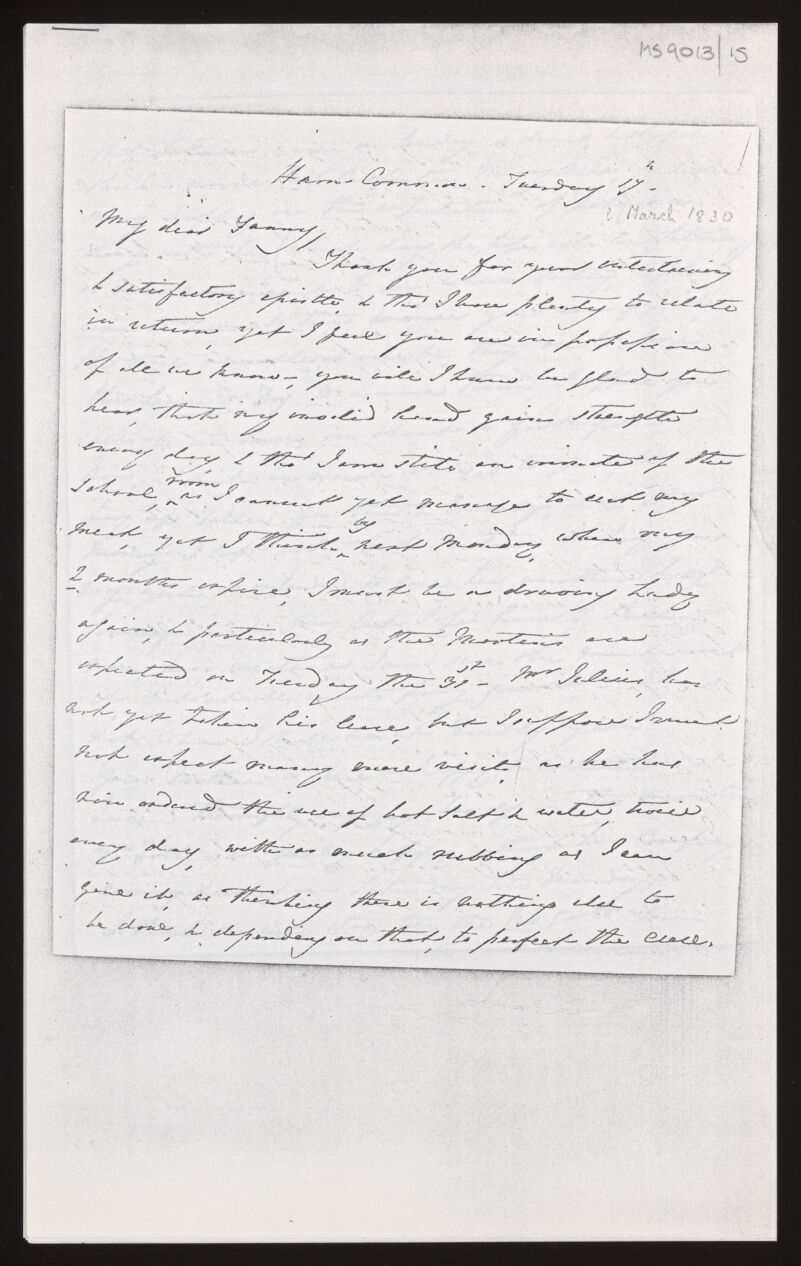 MS9013/15
1
Ham Common. Tuesday 17th.
? March 1830
My dear Fanny,
Thank you for your entertaining
& satisfactory epistle, & tho' I have plenty to relate
in return, yet I feel you are in possession
of all we know–, you will I know be glad to
hear, that my invalid hand gains strength
every day, & tho' I am still an inmate of the
School, room as I cannot yet manage to cut my
meat, yet I think by next Monday, when my
2 months expire, I must be a drawing Lady
again, & particularly as the Martins are
expected on Tuesday the 31st– Mr Julius, has
not yet taken his leave, but I suppose I must
not expect many more visits, as he has
now ordered the use of hot salt & water, twice
every day, with as much rubbing as I can
give it, as thinking there is nothing else to
be done, & depending on that, to perfect the cure.